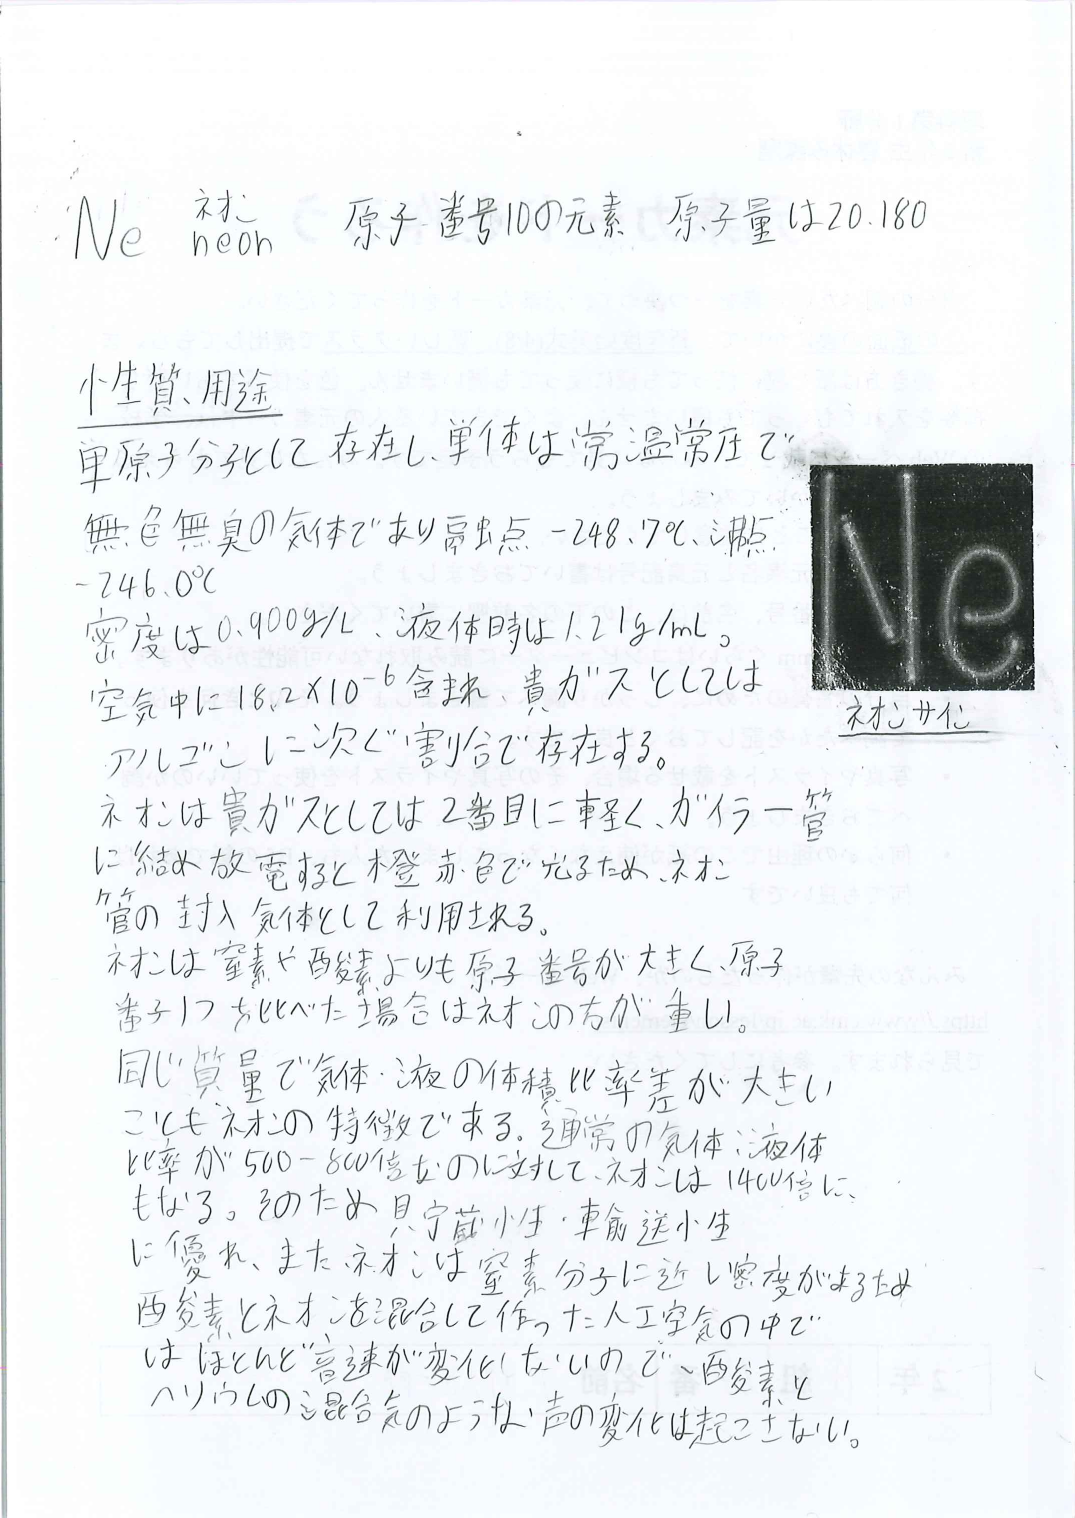 Ne ネオン neon 原子番号10の元素 原子量は20.180
性質、用途
単原子分子として存在し、単体は常温常圧で
無色無臭の気体であり融点-248.7℃、沸点
-246.0℃
密度は0.900g/L、液体時は1.21g/mL。
空気中に18.2×10-6含まれ 貴ガスとしては
アルゴンに次ぐ割合で存在する。
Ne
ネオンサイン
ネオンは貴ガスとしては2番目に軽く、ガイラー管
に詰め放電すると橙赤色で光るため、ネオン
管の封入気体として利用される。
ネオンは窒素や酸素よりも原子番号が大きく原子
番子1つを比べた場合はネオンの方が重い。
同じ質量で気体・液の体積比率差が大きい
こともネオンの特徴である。通常の気体:液体
比率が500-800倍なのに対して、ネオンは1400倍に、
もなる。そのため貯蔵性・輸送性
に優れ、また、ネオンは窒素分子に近い密度があるため
酸素とネオンを混合して作った人工空気の中で
はほとんど音速が変化しないので 酸素と
ヘリウムの混合気のような声の変化は起こさない。